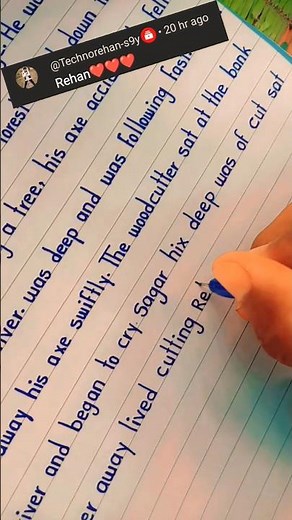 @Technorehan-s9y • 20 hr ago
Rehan❤️❤️❤️
He wo
down th
fel
ores
a tree, his axe acc
iver. was deep and was following fas
away his axe swiftly. The woodcutter sat at the bank
iver and began to cry Sagar hix deep was of cut sat
er away lived cutting Re